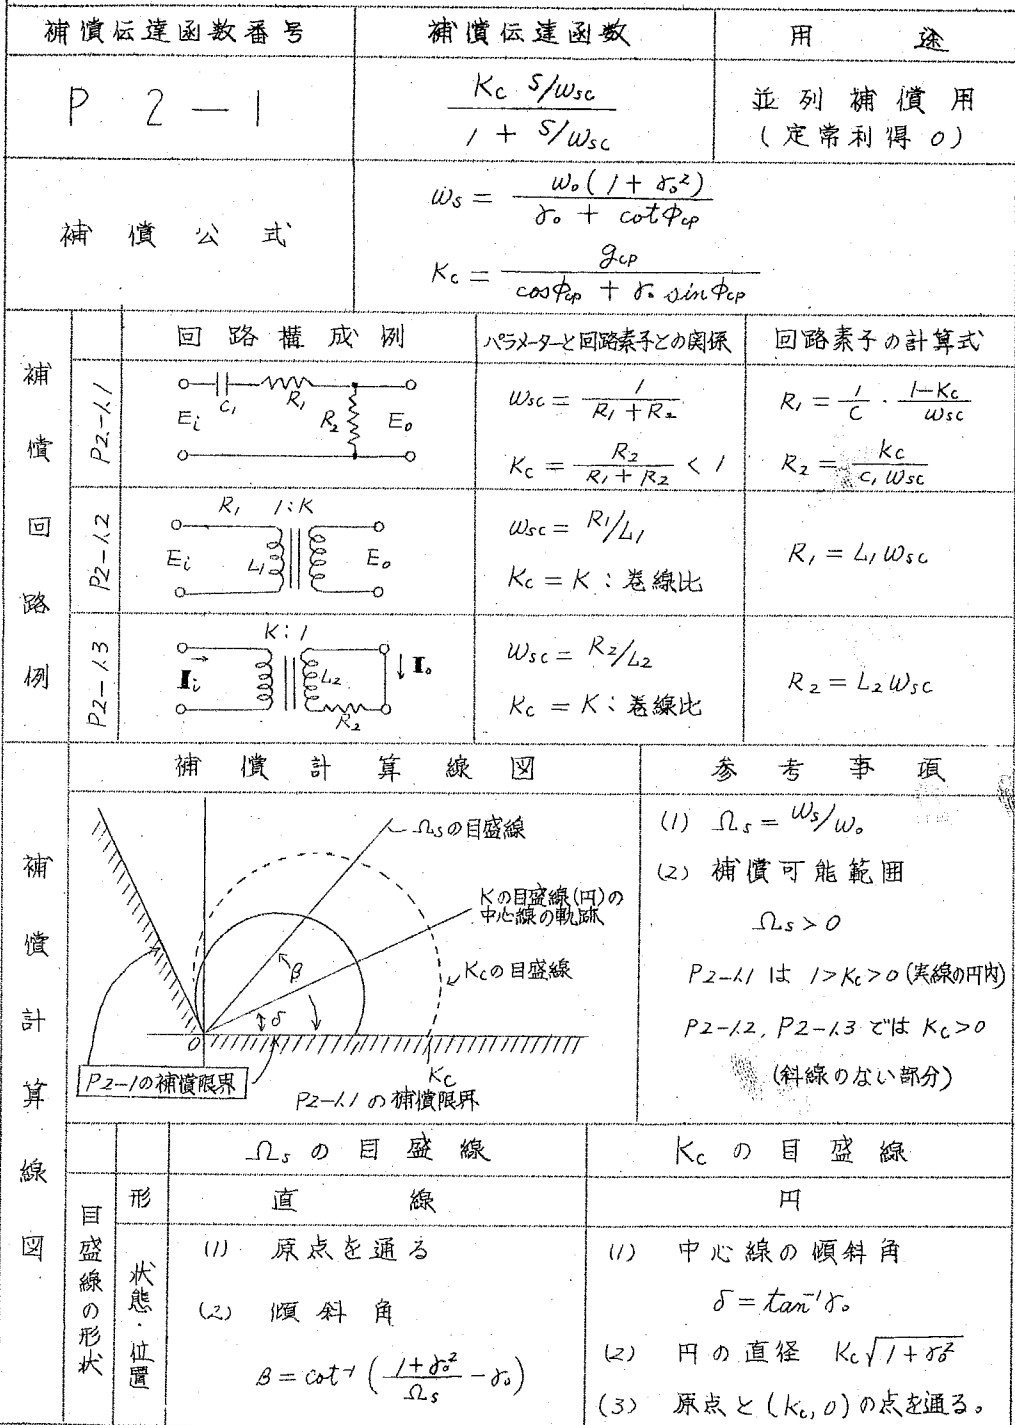 補償伝達函数番号
補償伝達函数
用 途
P 2-1
Kc S/ωsc / 1 + S/ωsc
並列補償用
(定常利得 0)
補償公式
ωs = ω₀(1 + γ₀²) / γ₀ + cotφcp
Kc = gcp / cosφcp + γ₀ sinφcp
補償回路例
回路構成例
パラメーターと回路素子との関係
回路素子の計算式
P2-1.1
C₁ R₁ R₂ Ei Eo
ωsc = 1 / R₁ + R₂
Kc = R₂ / R₁ + R₂ < 1
R₁ = 1/C · 1-Kc / ωsc
R₂ = Kc / C₁ ωsc
P2-1.2
R₁ 1:K
Ei L₁ Eo
ωsc = R₁/L₁
Kc = K : 巻線比
R₁ = L₁ωsc
P2-1.3
K:1
Ii L₂ Io
R₂
ωsc = R₂/L₂
Kc = K : 巻線比
R₂ = L₂ωsc
補償計算線図
補償計算線図
参考事項
Ωsの目盛線
Kの目盛線(円)の
中心線の軌跡
Kcの目盛線
β
δ
0
Kc
P2-1の補償限界
P2-1.1の補償限界
(1) Ωs = ωs/ω₀
(2) 補償可能範囲
Ωs > 0
P2-1.1 は 1>Kc>0 (実線の円内)
P2-1.2, P2-1.3 では Kc>0
(斜線のない部分)
目盛線の形状
Ωs の目盛線
Kc の目盛線
形
直線
円
状態・位置
(1) 原点を通る
(2) 傾斜角
β = cot⁻¹ ( 1+γ₀² / Ωs - γ₀)
(1) 中心線の傾斜角
δ = tan⁻¹γ₀
(2) 円の直径 Kc√1+γ₀²
(3) 原点と(Kc, 0)の点を通る。